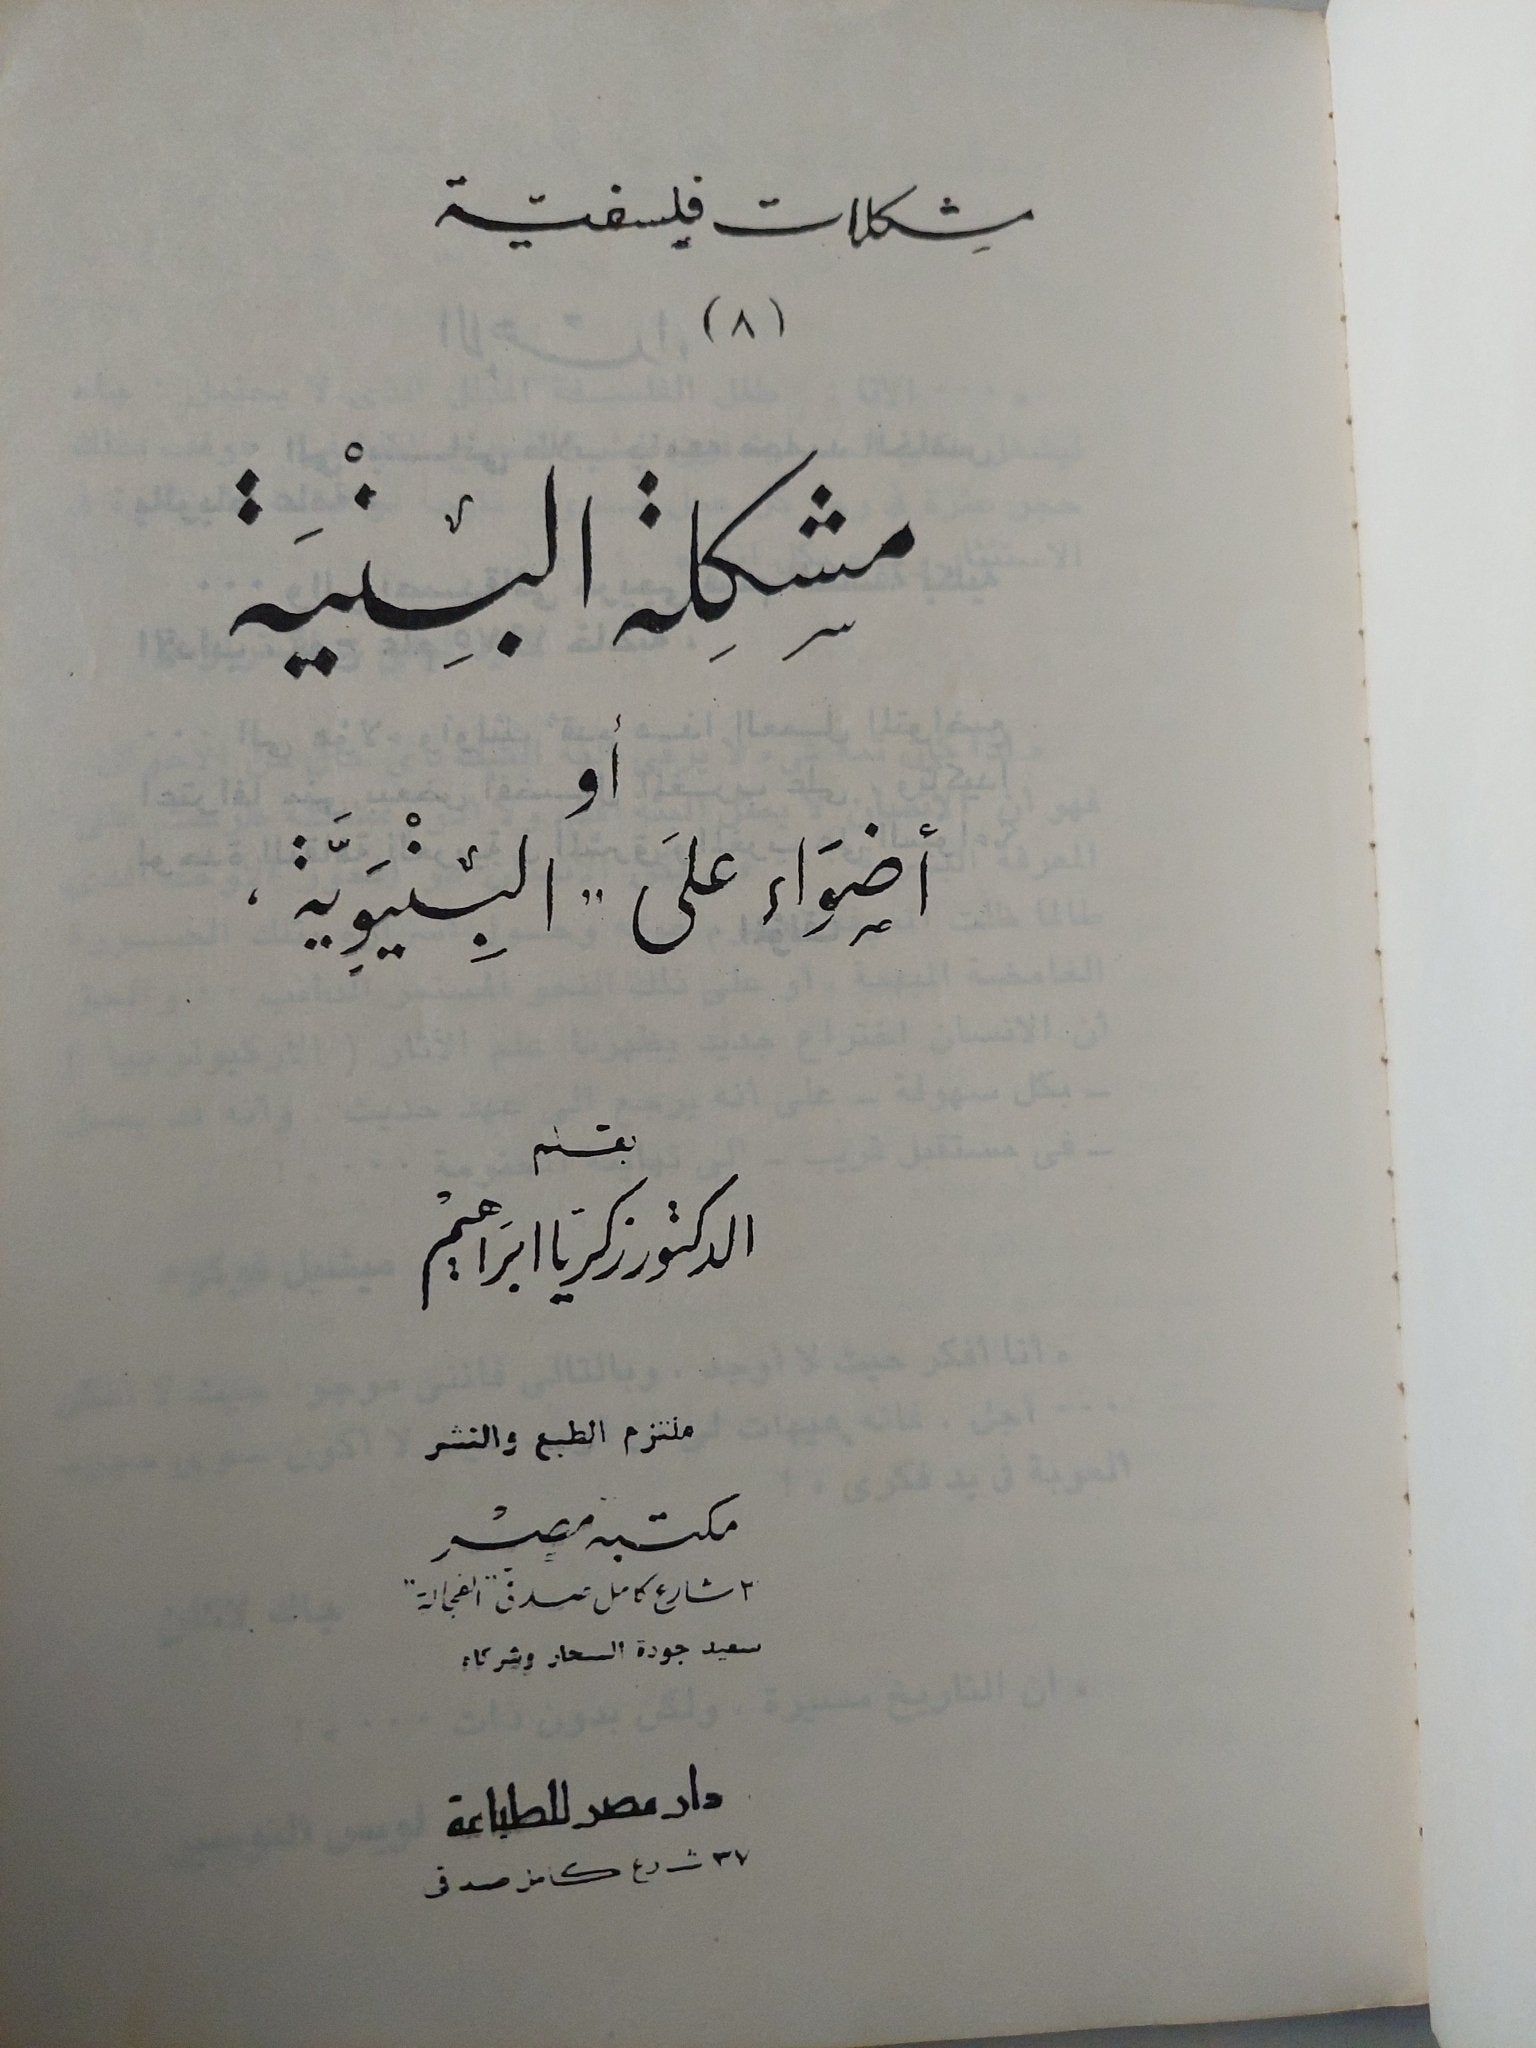 مشكلات فلسفيّة
(٨)
مشكِلة البِنْيَة
أو
أضوَاء علَى "البِنْيَوِيَّة"
بقلم
الدكتور زكريَا ابرَاهيمْ
ملتزم الطبع والنشر
مكتبة مصر
٣ شارع كامل صدقى "الفجالة"
سعيد جودة السحار وشركاه
دار مصر للطباعة
٣٧ شارع كامل صدقى